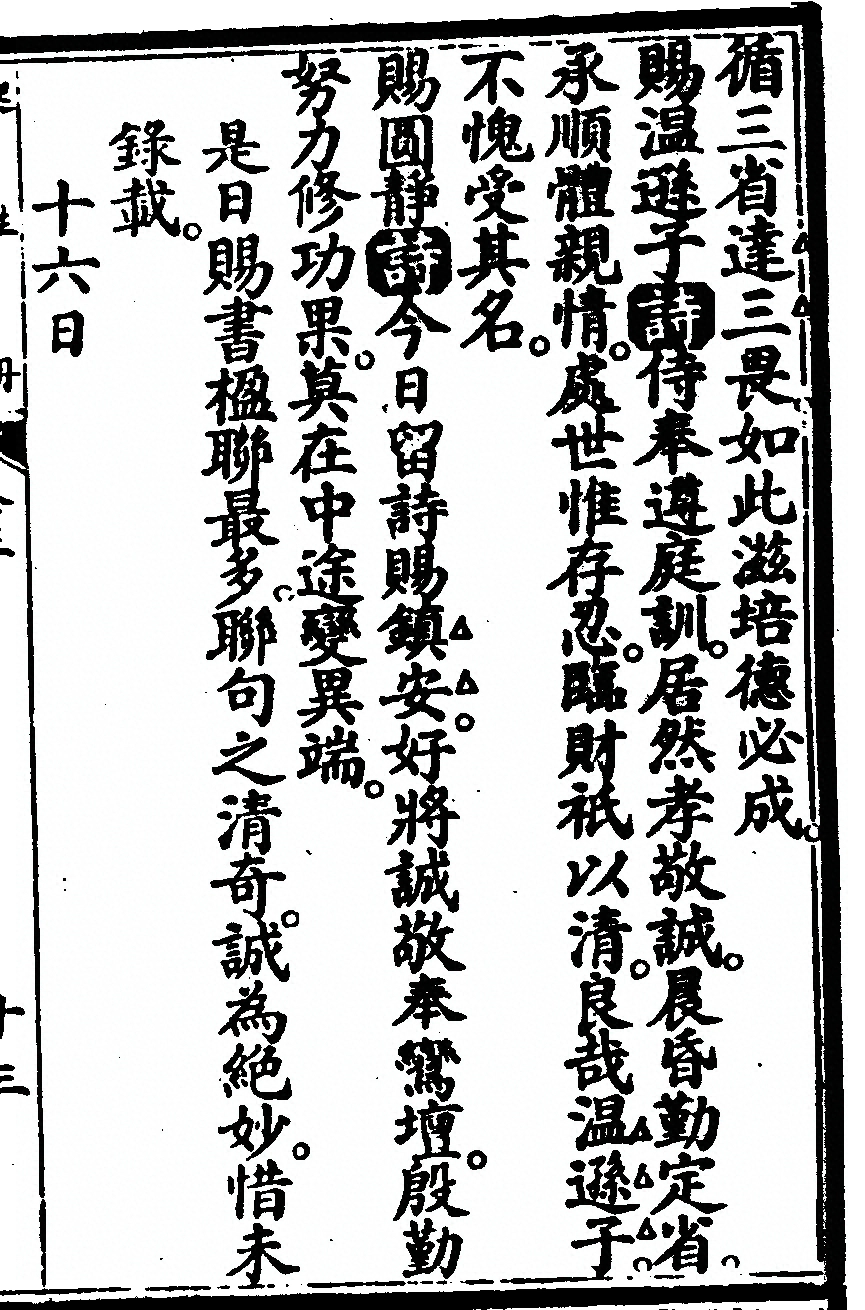 循三省達三畏如此滋培德必成。
賜温遜子詩侍奉遵庭訓。居然孝敬誠。晨昏勤定省。
承順體親情。處世惟存忍。臨財祇以清。良哉温遜子。
不愧受其名。
賜圓靜詩今日留詩賜鎮安。好將誠敬奉鸞壇。殷勤
努力修功果。莫在中途變異端。
是日賜書楹聯最多。聯句之清奇。誠為絕妙。惜未
錄載。
十六日
十三